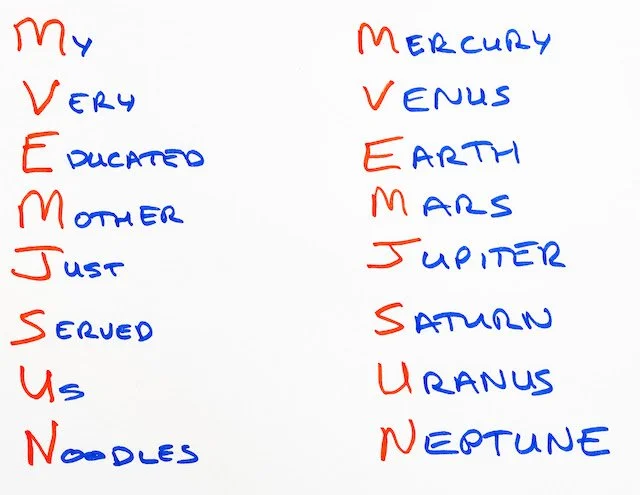 My MERCURY
VERY VENUS
EDUCATED EARTH
MOTHER MARS
JUST JUPITER
SERVED SATURN
US URANUS
NOODLES NEPTUNE